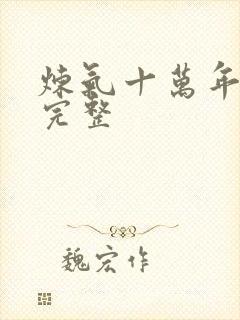 煉氣十萬年
完整
魏宏作